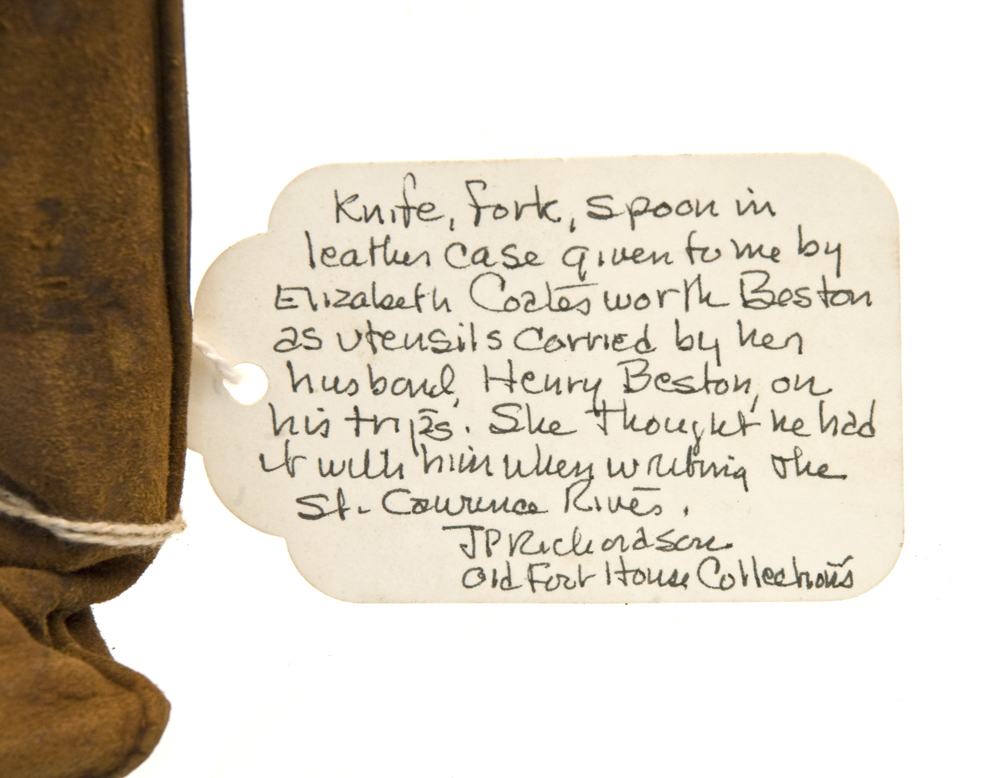 Knife, fork, spoon in
leather case given to me by
Elizabeth Coatesworth Beston
as utensils carried by her
husband, Henry Beston, on
his trips. She thought he had
it with him when writing the
St. Lawrence River.
JP Richardson
Old Fort House Collections